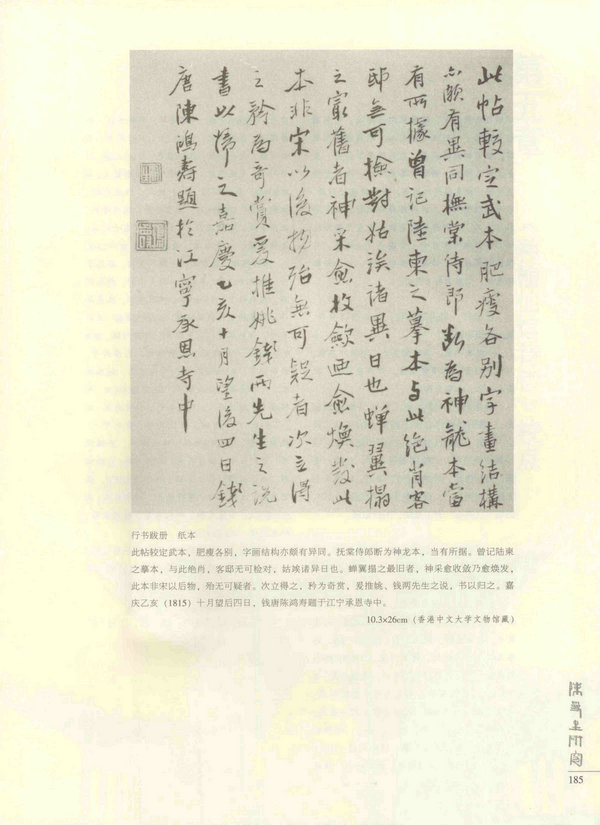 此帖較定武本肥瘦各别字畫結構
亦頗有異同撫棠侍郎断為神龍本當
有所據曾記陸柬之摹本与此絶肖客
邸無可檢對姑诶諸異日也蟬翼搨
之㝡舊者神采愈收歛迺愈焕发此
本非宋以後物殆無可疑者次立得
之矜为奇賞爰推姚錢兩先生之说
書以歸之嘉慶乙亥十月望後四日錢
唐陳鴻壽題於江寧承恩寺中
行书跋册 纸本
此帖较定武本，肥瘦各别，字画结构亦颇有异同。抚棠侍郎断为神龙本，当有所据。曾记陆柬
之摹本，与此绝肖，客邸无可检对，姑竢诸异日也。蝉翼搨之最旧者，神采愈收敛乃愈焕发，
此本非宋以后物，殆无可疑者。次立得之，矜为奇赏，爰推姚、钱两先生之说，书以归之。嘉
庆乙亥（1815）十月望后四日，钱唐陈鸿寿题于江宁承恩寺中。
10.3×26cm（香港中文大学文物馆藏）
185